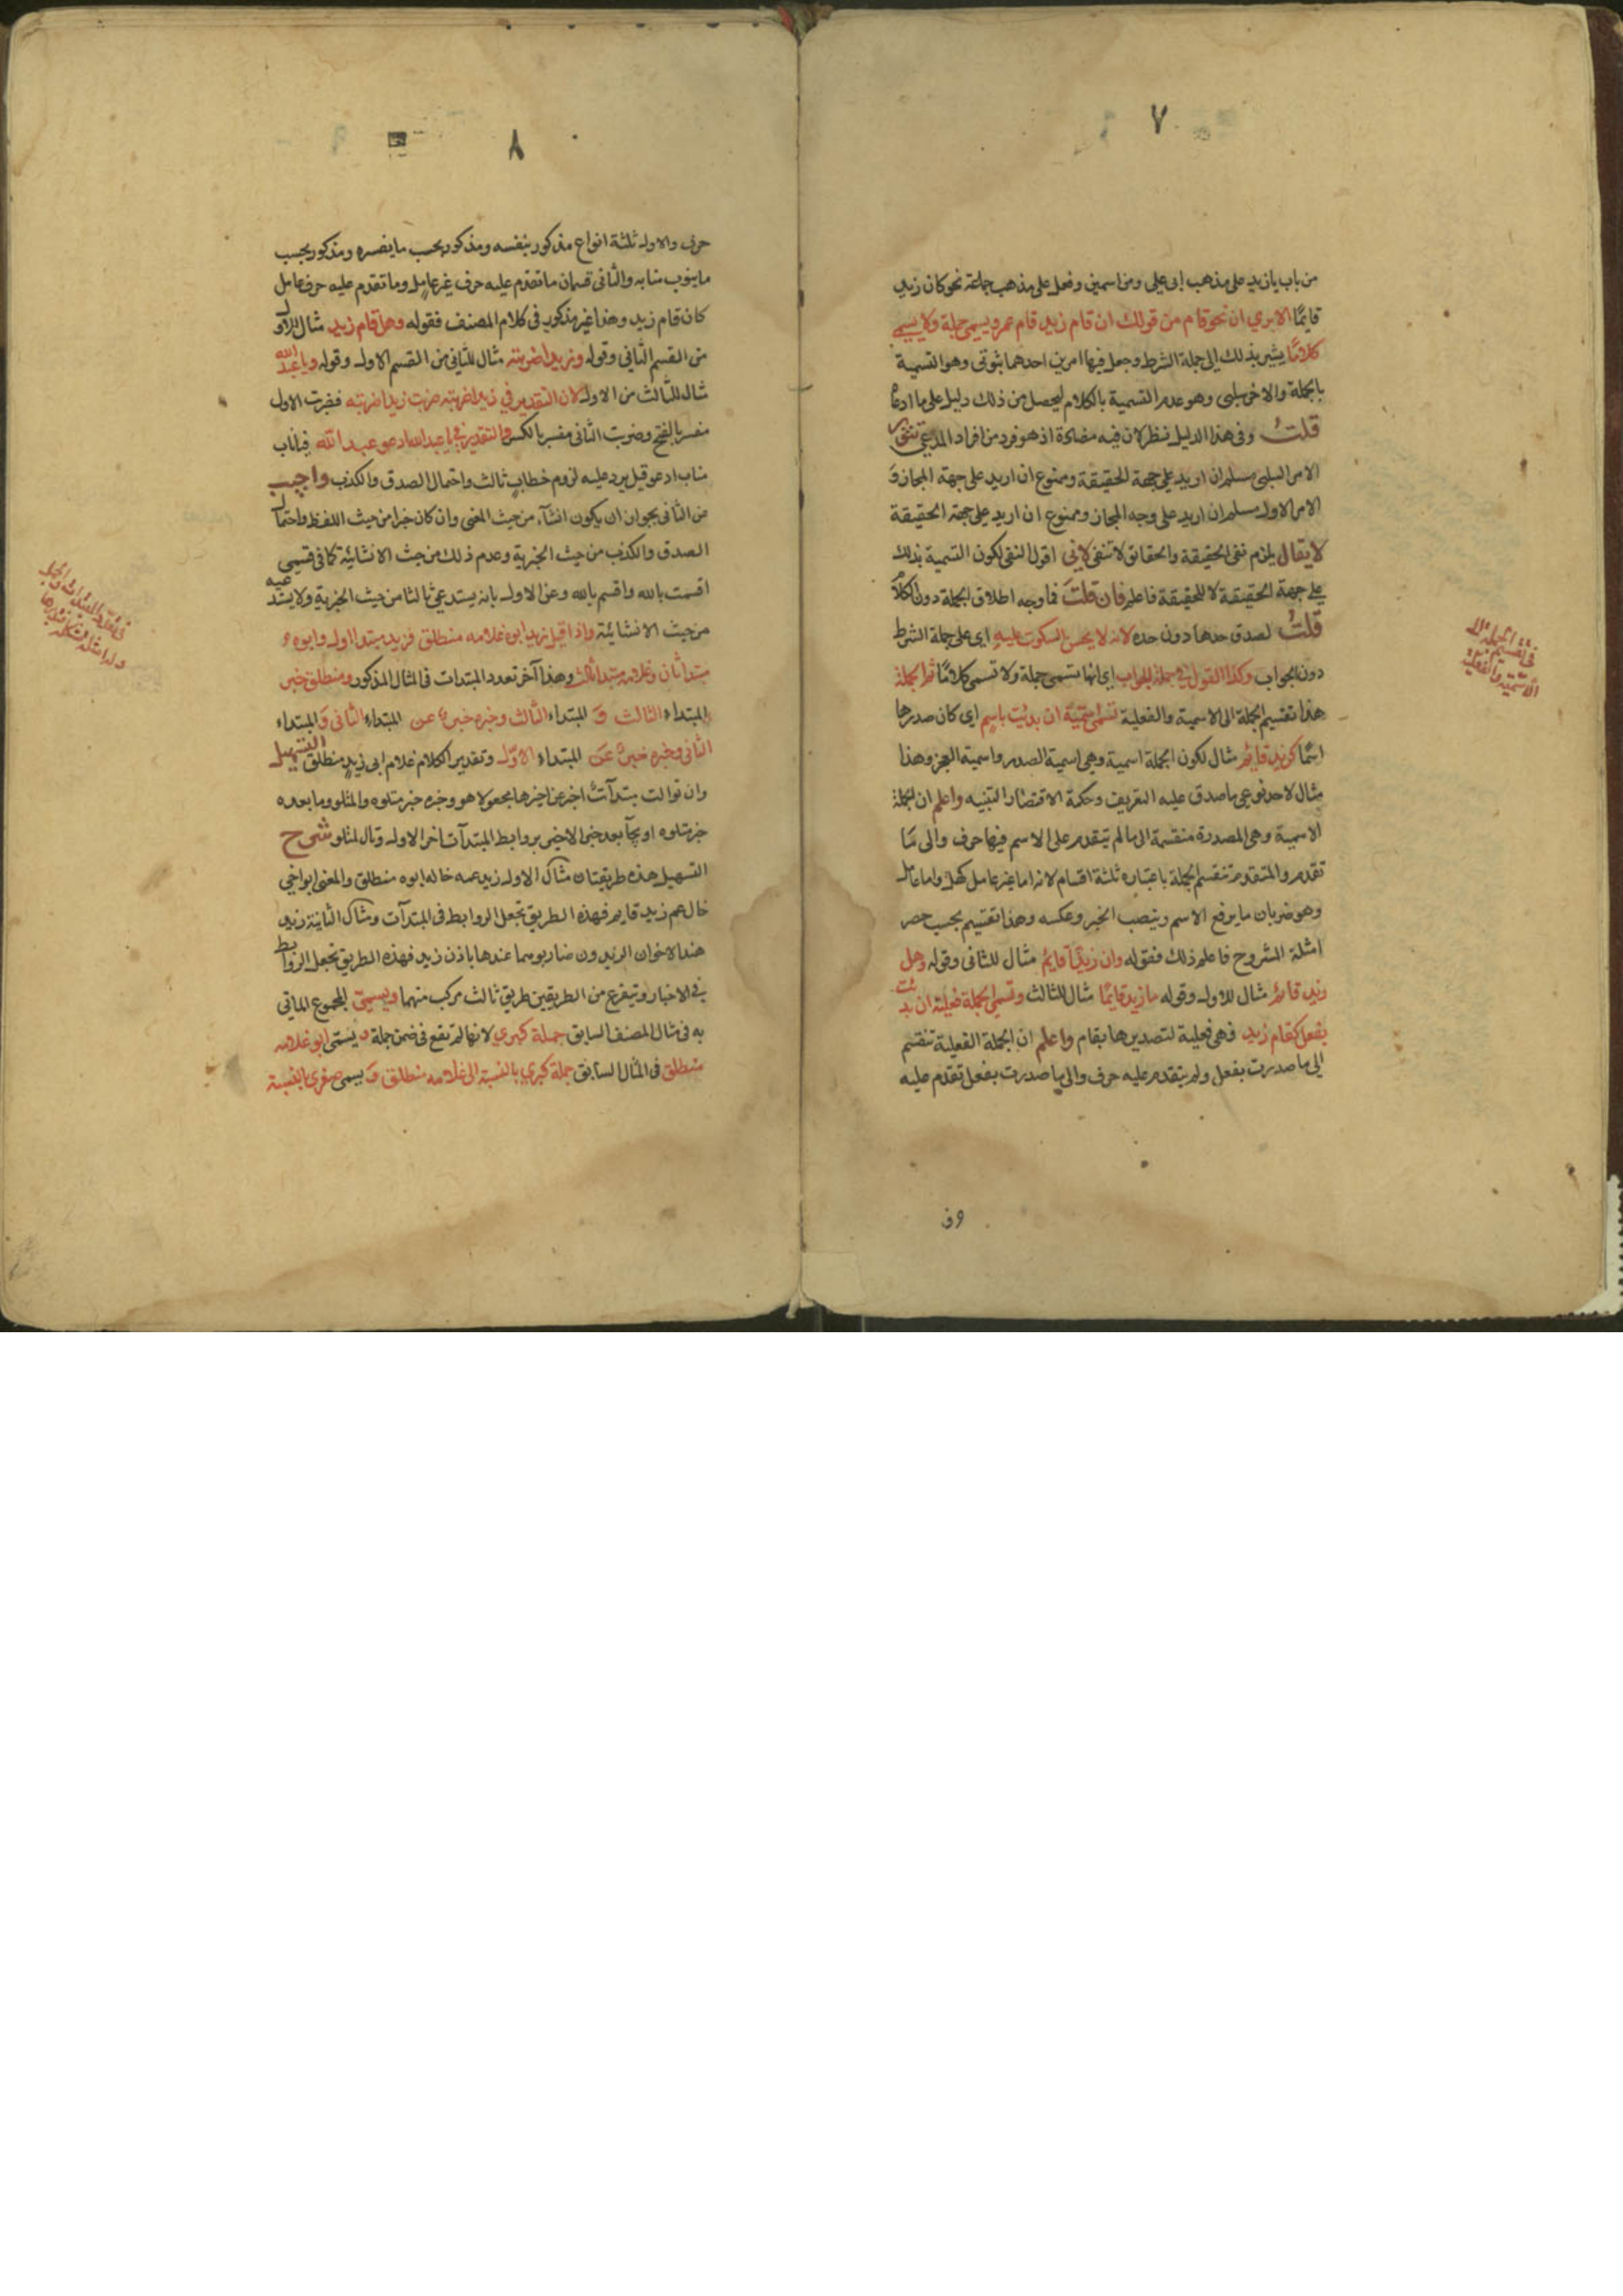 ٧
من باب يازيد على مذهب ابى على ومن اسمين وفعل على مذهب جماعة نحو كان زيد
قايمًا الا يرى ان نحو قام من قولك ان قام زيد قام عمرو يسمى جملة ولا يسمى
كلامًا يشير بذلك الى جملة الشرط وجعل فيها امرين احدهما ثبوتى وهو التسمية
بالجملة والاخر سلبى وهو عدم التسمية بالكلام ليحصل من ذلك دليل على ما ادعاه
قلتُ وفى هذا الدليل نظر لان فيه مصادرة اذ هو فرد من افراد المدعى
الامر السلبى مسلم ان اريد على جهة الحقيقة وممنوع ان اريد على جهة المجاز وَ
الامر الاول مسلم ان اريد على وجه المجاز وممنوع ان اريد على جهة الحقيقة
لا يقال يلزم نفى الحقيقة والحقائق لا تنفى لانى اقول النفى لكون التسمية بذلك
على جهة الحقيقة لا للحقيقة فاعلم فان قلتَ فما وجه اطلاق الجملة دون الكلام
قلتُ لصدق حدها دون حده لانه لا يحسن السكوت عليه اى على جملة الشرط
دون الجواب وكذا القول فى جملة الجواب اى انها تسمى جملة ولا تسمى كلامًا ثم الجملة
هذا تقسيم الجملة الى الاسمية والفعلية تسمى اسميّة ان بدئت باسم اى كان صدرها
اسمًا كزيد قايمٌ مثال لكون الجملة اسمية وهى اسمية الصدر واسمية العجز وهذا
مثال لاحد نوعى ما صدق عليه التعريف وحكمة الاقتصار التنبيه واعلم ان الجملة
الاسمية وهى المصدرة منقسمة الى ما لم يتقدم على الاسم فيها حرف والى مَا
تقدم والمتقدم تنقسم الجملة باعتباره ثلثة اقسام لانه اما غير عامل كهل واما عامل
وهو ضربان ما يرفع الاسم وينصب الخبر وعكسه وهذا تقسيم بحسب حصر
امثلة الشروح فاعلم ذلك فقوله وان زيدًا قايمٌ مثال للثانى وقوله وهل
زيد قائمٌ مثال للاول وقوله ما زيد قايمًا مثال للثالث وتسمى الجملة فعلية ان بدئت
بفعل كقام زيد فهى فعلية لتصديرها بقام واعلم ان الجملة الفعلية تنقسم
الى ما صدرت بفعل ولم يتقدم عليه حرف والى ما صدرت بفعل تقدم عليه
٨
حرف والاول ثلثة انواع مذكور بنفسه ومذكور بحسب ما يفسره ومذكور بحسب
ما ينوب منابه والثانى قسمان ما تقدم عليه حرف غير عامل وما تقدم عليه حرف عامل
كان قام زيد وهذا غير مذكور فى كلام المصنف فقوله وهل قام زيد مثال للاول
من القسم الثانى وقوله وزيدا ضربته مثال للثانى من القسم الاول وقوله ويا عبد الله
مثال للثالث من الاول لان التقدير فى زيدا ضربته ضربت زيدا ضربته فضربت الاول
مفسر بالفتح وضربت الثانى مفسر بالكسر والتقدير فى يا عبد الله ادعو عبد الله فياناب
مناب ادعو قيل يرد عليه لزوم خطاب ثالث واحتمال الصدق والكذب واجيب
عن الثانى بجواز ان يكون انشآء من حيث المعنى وان كان خبرا من حيث اللفظ واحتمال
الصدق والكذب من حيث الخبرية وعدم ذلك من حيث الانشائية كما فى قسمى
اقسمت بالله واقسم بالله وعن الاول بانه يستدعى ثالثا من حيث الخبرية ولا يستدعيه
من حيث الانشائية واذا قيل زيد ابوه غلامه منطلق فزيد مبتدا اول وابوه
مبتدا ثان وغلامه مبتدا ثالث وهذا آخر تعدد المبتدات فى المثال المذكور ومنطلق خبر
المبتداء الثالث وَ المبتداء الثالث وخبره خبر عن المبتداء الثانى وَ المبتداء
الثانى وخبره خبرٌ عن المبتداء الاوّل وتقدير الكلام غلام ابى زيد منطلق التسهيل
وان توالت مبتدآت اخبر عن اخرها مجعولا هو وخبره خبر متلوه والمتلو وما بعده
خبر متلوه او بعد خبر الاخير بروابط المبتدآت اخر الاول وتال لمتلو شرح
التسهيل هذه طريقتان مثال الاول زيد عمه خاله ابوه منطلق والمعنى ابو اخى
خال عم زيد قايم فهذه الطريق تجعل الروابط فى المبتدآت ومثال الثانية زيد
هند الاخوان الزيدون ضاربوهما عندها باذن زيد فهذه الطريق تجعل الروابط
فى الاخبار ويتفرع من الطريقين طريق ثالث مركب منهما ويسمى المجموع الماتى
به فى مثال المصنف السابق جملة كبرى لانها لم تقع فى ضمن جملة وَ يسمى ابو غلامه
منطلق فى المثال السابق جملة كبرى بالنسبة الى غلامه منطلق وَ يسمى صغرى بالنسبة